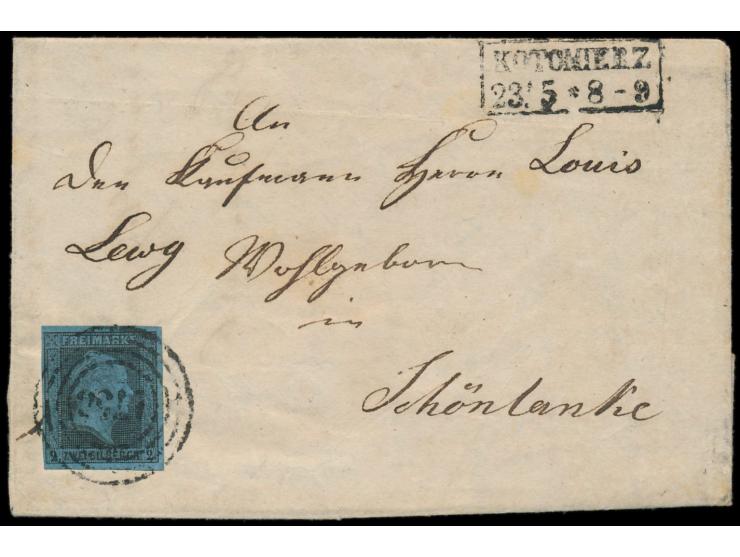 KOTOMIERZ
23. 5 * 8 - 9
An
Den Kaufmann Herrn Louis
Lewy Wohlgeborn
in
Schönlanke
FREIMARKE
2 ZWEI SILBERGR. 2